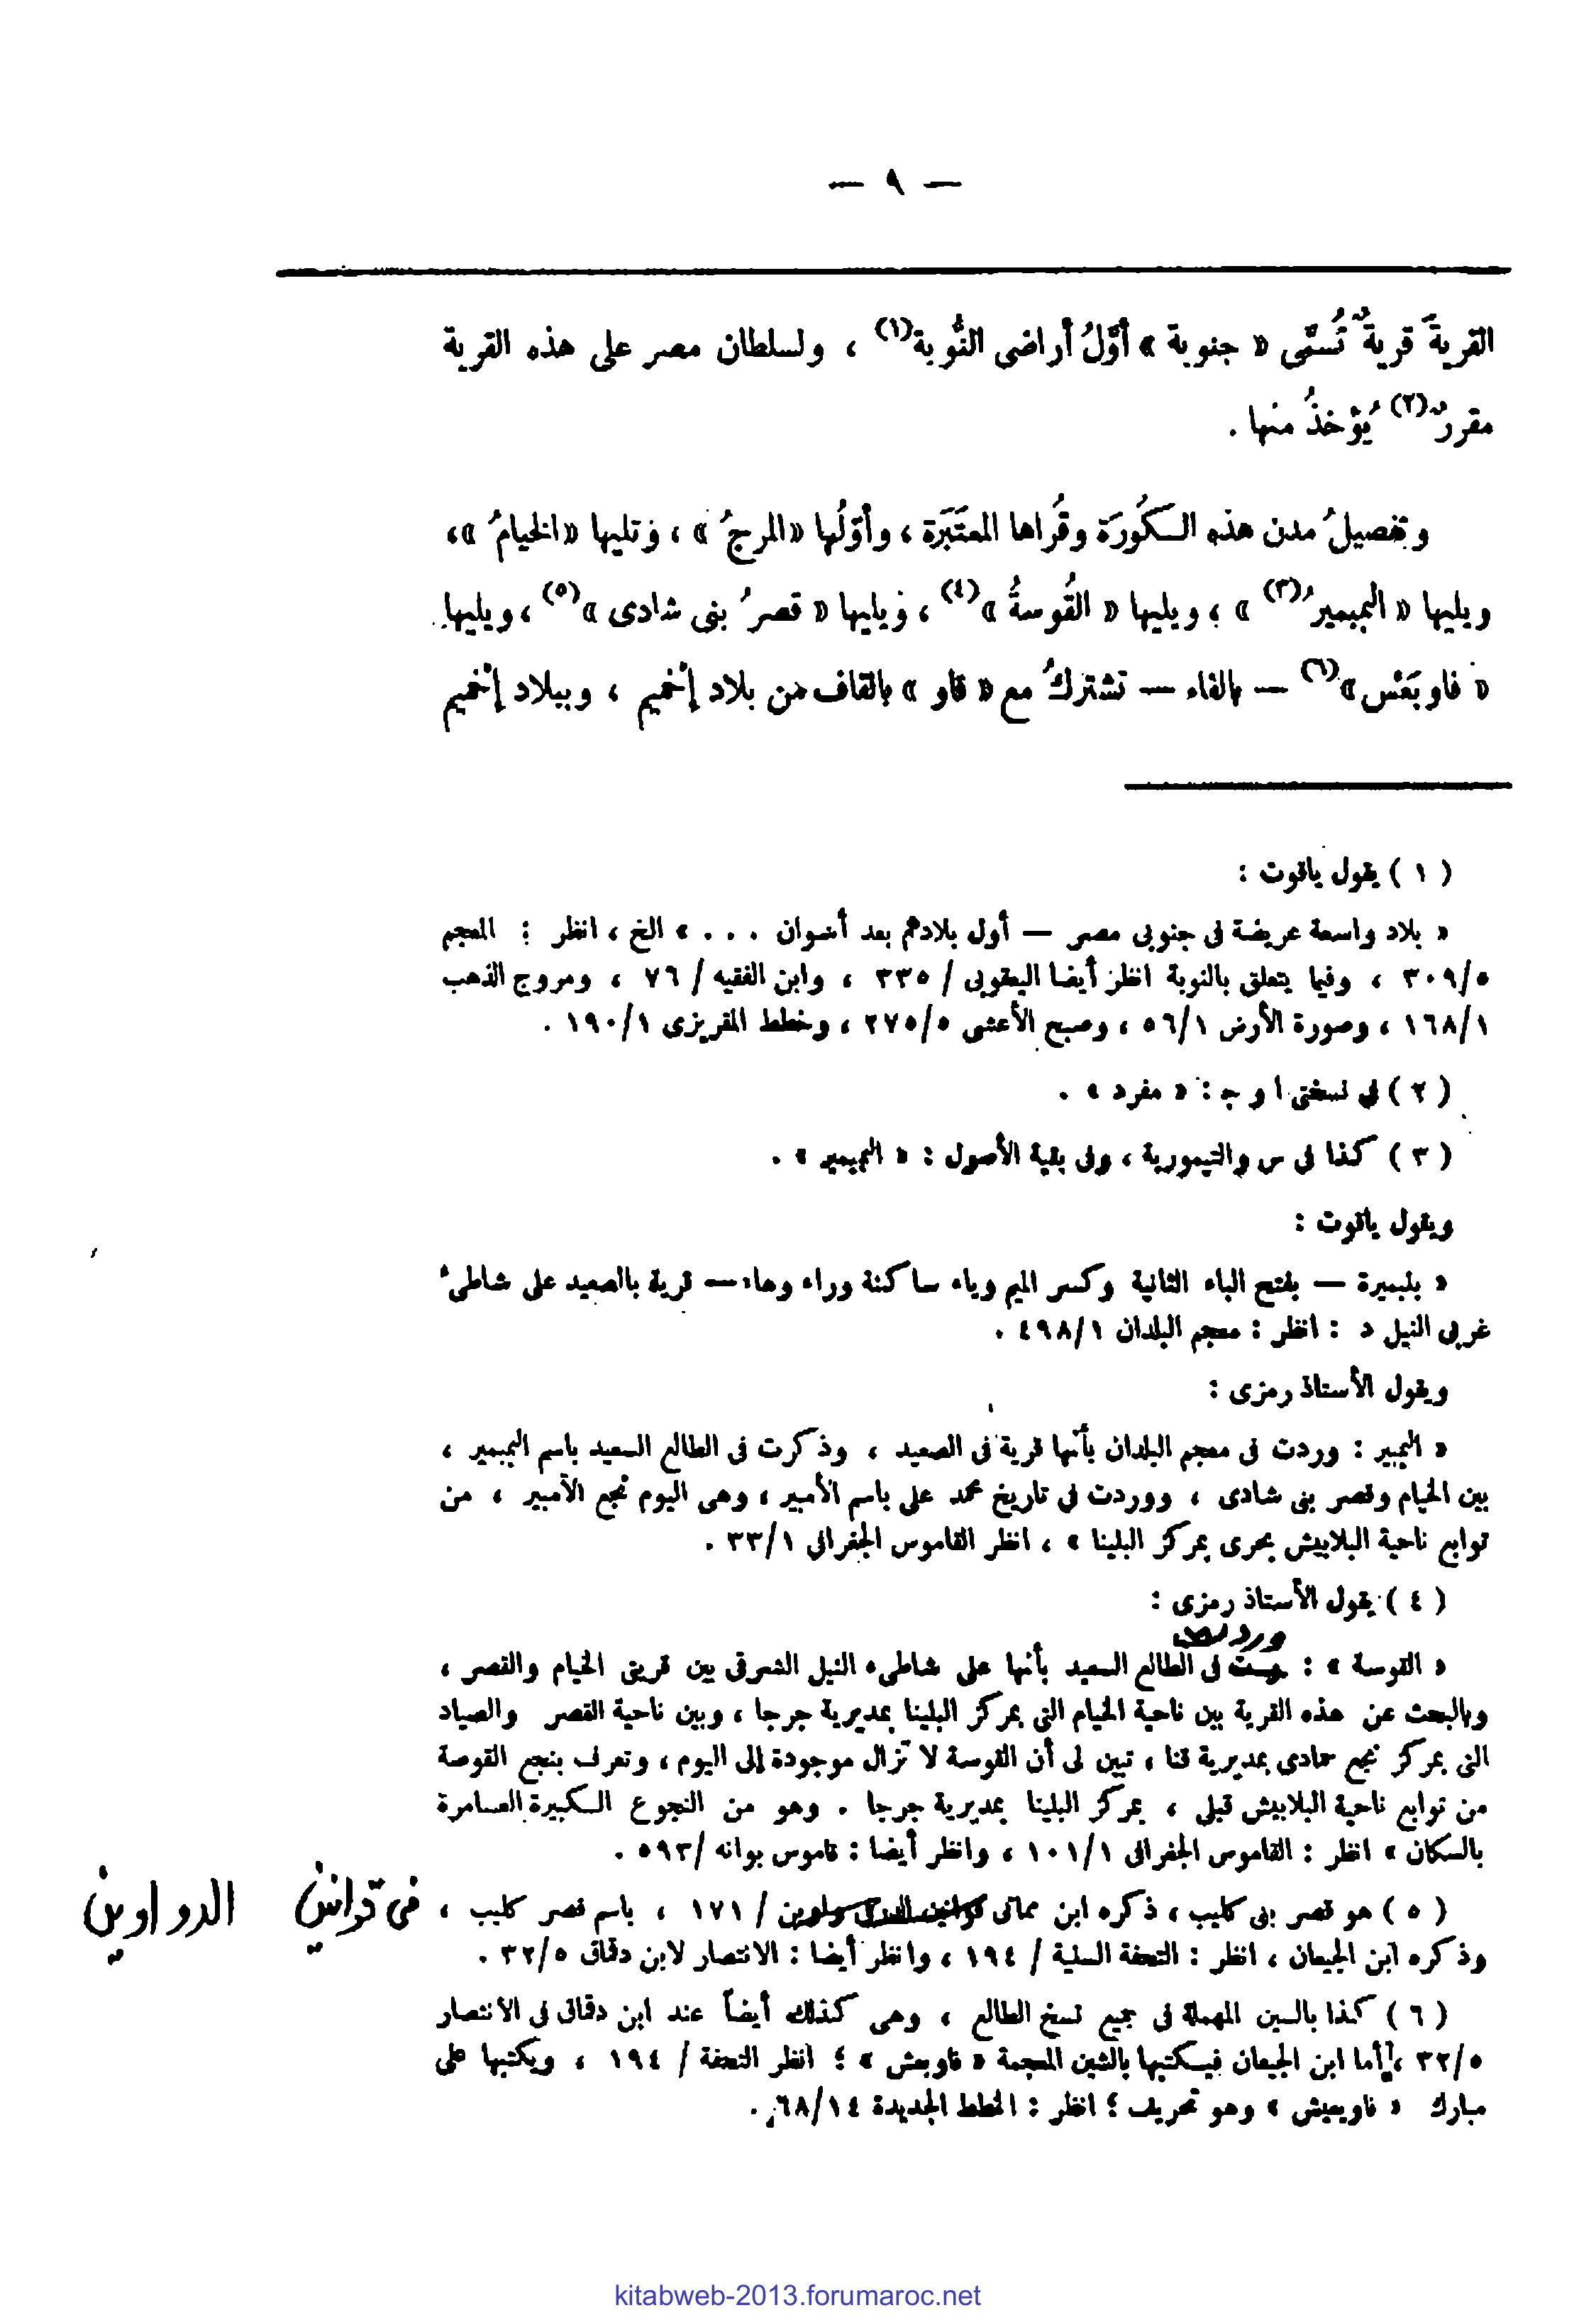 — ٩ —
القريةَ قريةٌ تُسَمّى « جنوبة » أوَّلُ أراضى النُّوبة(١) ، ولسلطان مصر على هذه القرية
مقررٌ(٢) يُؤخذُ منها .
وتفصيلُ مدن هذه الكُورَة وقُراها المعتَبَرة ، وأوّلُها «المرجُ » ، وتليها «الخيامُ »،
ويليها « البمبميرُ(٣) » ؛ ويليها « القُوسةُ »(٤) ، ويليها « قصرُ بنى شادى »(٥) ، ويليها
« فاو بَعْس »(٦) — بالفاء — تشتركُ مع « قاو » بالقاف من بلاد إخميم ، وببلاد إخميم
( ١ ) يقول ياقوت :
« بلاد واسعة عريضة فى جنوبى مصر — أول بلادهم بعد أسوان . . . » الخ ، انظر : المعجم
٣٠٩/٥ ، وفيما يتعلق بالنوبة انظر أيضا اليعقوبى / ٣٣٥ ، وابن الفقيه / ٧٦ ، ومروج الذهب
١٦٨/١ ، وصورة الأرض ٥٦/١ ، وصبح الأعشى ٢٧٥/٥ ، وخطط المقريزى ١٩٠/١ .
( ٢ ) فى نسختى ا و ج : « مفرد » .
( ٣ ) كذا فى س والتيمورية ، وفى بقية الأصول : « البميمير » .
ويقول ياقوت :
« بلبميرة — بفتح الباء الثانية وكسر الميم وياء ساكنة وراء وهاء — قرية بالصعيد على شاطىء
غربى النيل د : انظر : معجم البلدان ٤٩٨/١ .
ويقول الأستاذ رمزى :
« البمبير : وردت فى معجم البلدان بأنها قرية فى الصعيد ، وذكرت فى الطالع السعيد باسم البمبمير ،
بين الخيام وقصر بنى شادى ، ووردت فى تاريخ محمد على باسم الأمبير ، وهى اليوم نجع الأمبير ، من
توابع ناحية البلابيش بحرى بمركز البلينا » ، انظر القاموس الجغرافى ٣٣/١ .
( ٤ ) يقول الأستاذ رمزى :
وردت
« القوسة » : فى الطالع السعيد بأنها على شاطىء النيل الشرقى بين قريتى الخيام والقصر ،
وبالبحث عن هذه القرية بين ناحية الخيام التى بمركز البلينا بمديرية جرجا ، وبين ناحية القصر والصياد
التى بمركز نجع حمادى بمديرية قنا ، تبين لى أن القوسة لا تزال موجودة إلى اليوم ، وتعرف بنجع القوصة
من توابع ناحية البلابيش قبلى ، بمركز البلينا بمديرية جرجا . وهو من النجوع الكبيرة العامرة
بالسكان » انظر : القاموس الجغرافى ١٠١/١ ، وانظر أيضا : قاموس بوانه /٥٩٣ .
( ٥ ) هو قصر بنى كليب ، ذكره ابن مماتى / ١٧١ ، باسم قصر كليب ، فى قوانين الدواوين
وذكره ابن الجيعان ، انظر : التحفة السنية / ١٩٤ ، وانظر أيضا : الانتصار لابن دقماق ٣٢/٥ .
( ٦ ) كذا بالسين المهملة فى جميع نسخ الطالع ، وهى كذلك أيضاً عند ابن دقماق فى الانتصار
٣٢/٥ ، أما ابن الجيعان فيكتبها بالشين المعجمة « فاوبعش » ؛ انظر التحفة / ١٩٤ ، ويكتبها على
مبارك « فاويعيش » وهو تحريف ؛ انظر : الخطط الجديدة ٦٨/١٤ .
kitabweb-2013.forumaroc.net